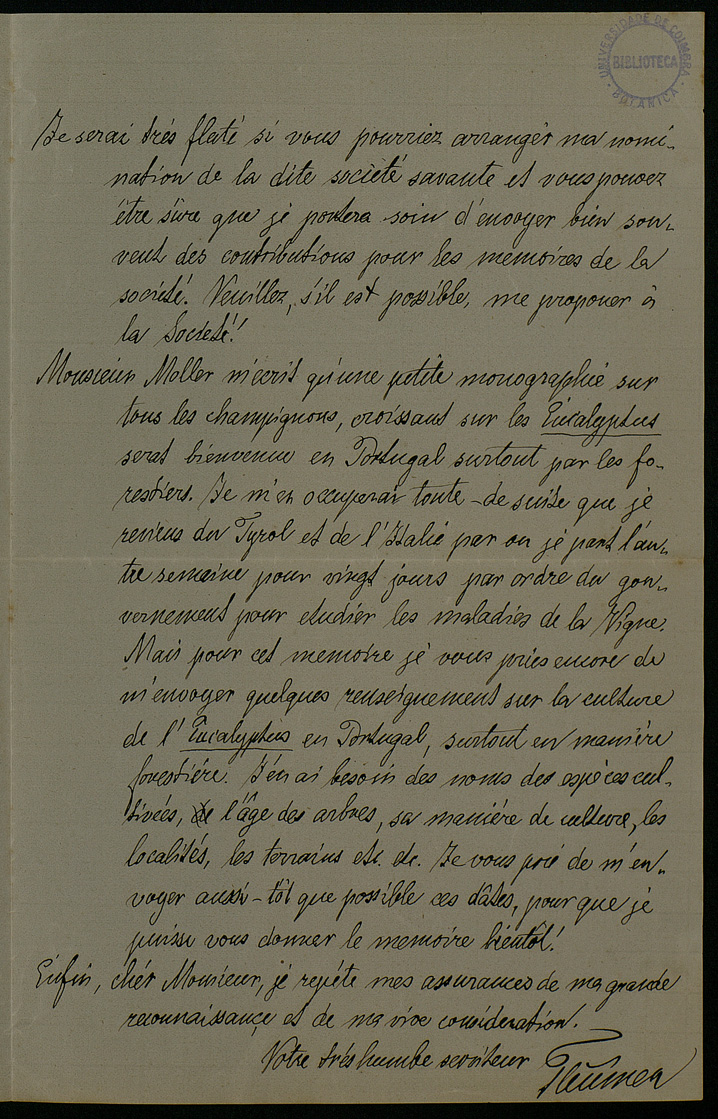 UNIVERSIDADE DE COIMBRA
BIBLIOTECA
BOTANICA
Je serai trés flaté si vous pourriez arrangér ma nomi-
nation de la dite société savante et vous pouvez
étre sûre que je portera soin d'envoyer bien sou-
vent des contributions pour les memoires de la
societé. Veuillez, s'il est possible, me proposer à
la Societé!
Monsieur Moller m'ecrit qu'une petite monographie sur
tous les champignons, croissant sur les Eucalyptus
serat bienvenue en Portugal surtout par les fo-
restiers. Je m'en occuperai toute-de suite que je
reviens du Tyrol et de l'Italie par ou je part l'au-
tre semaine pour vingt jours par ordre du gou-
vernement pour etudiér les maladiés de la Vigne.
Mais pour cet memoire je vous pries encore de
m'envoyer quelques renseignement sur la culture
de l'Eucalyptus en Portugal, surtout en maniére
forestiére. J'en ai besoin des noms des espéces cul-
tiveés, l'âge des arbres, sa maniére de culture, les
localités, les terrains etc. etc. Je vous prie de m'en-
voyer aussi-tôt que possible ces dâtes, pour que je
puisse vous donner le memoire bientôt!
Enfin, chér Monsieur, je repéte mes assurances de ma grande
reconnaissançe et de ma vive consideration.
Votre trés humbe serviteur
Thümen